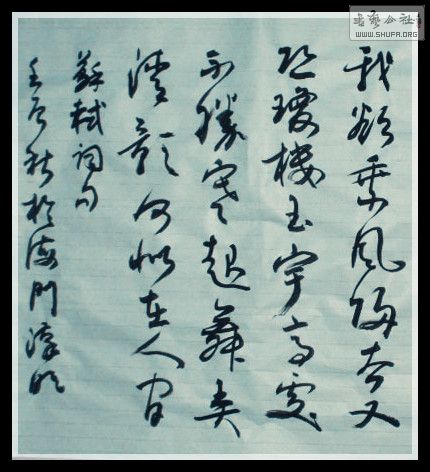 我欲乘风归去又
恐琼楼玉宇高处
不胜寒起舞弄
清影何似在人间
苏轼词句
壬辰秋於海门
書藝公社
WWW.SHUFA.ORG